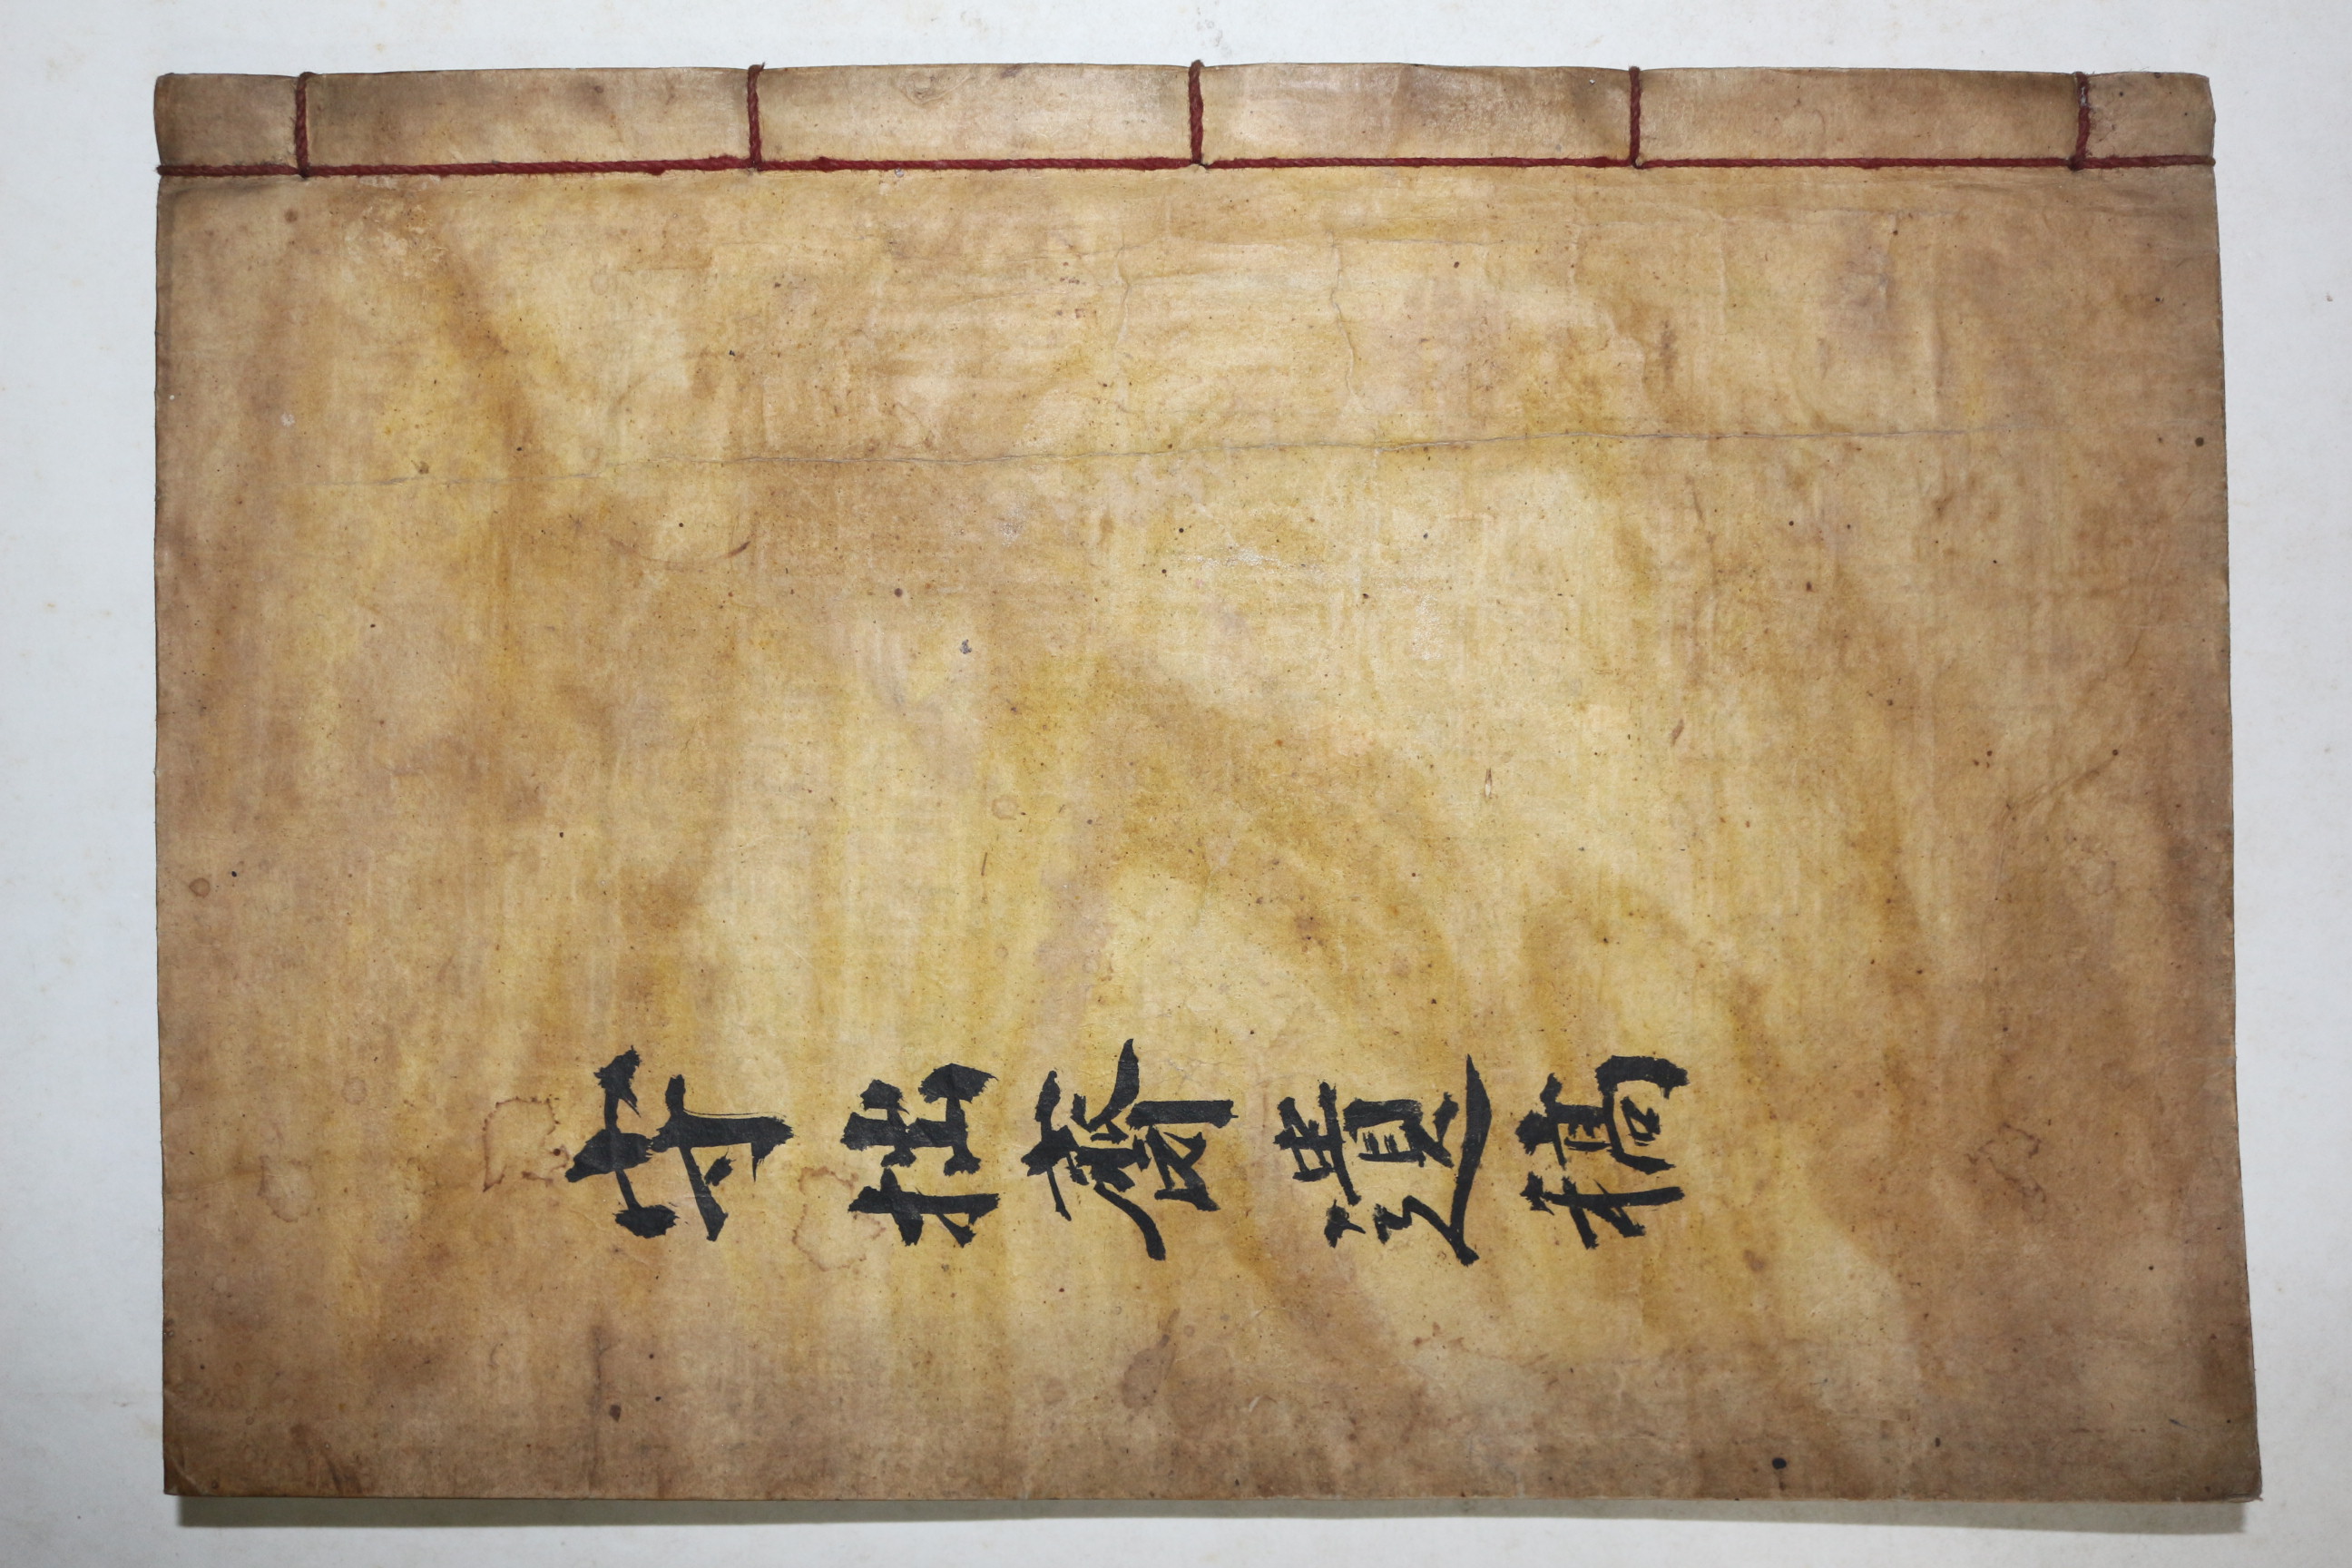 守拙齋遺稿